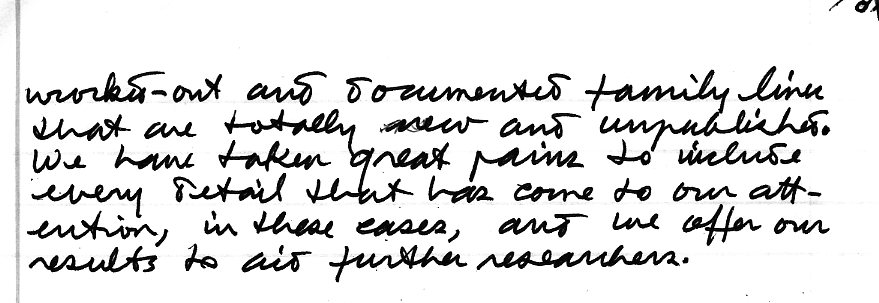 worked-out and documented family lines
that are totally new and unpublished.
We have taken great pains to include
every detail that has come to our att-
ention, in these cases, and we offer our
results to aid further researchers.